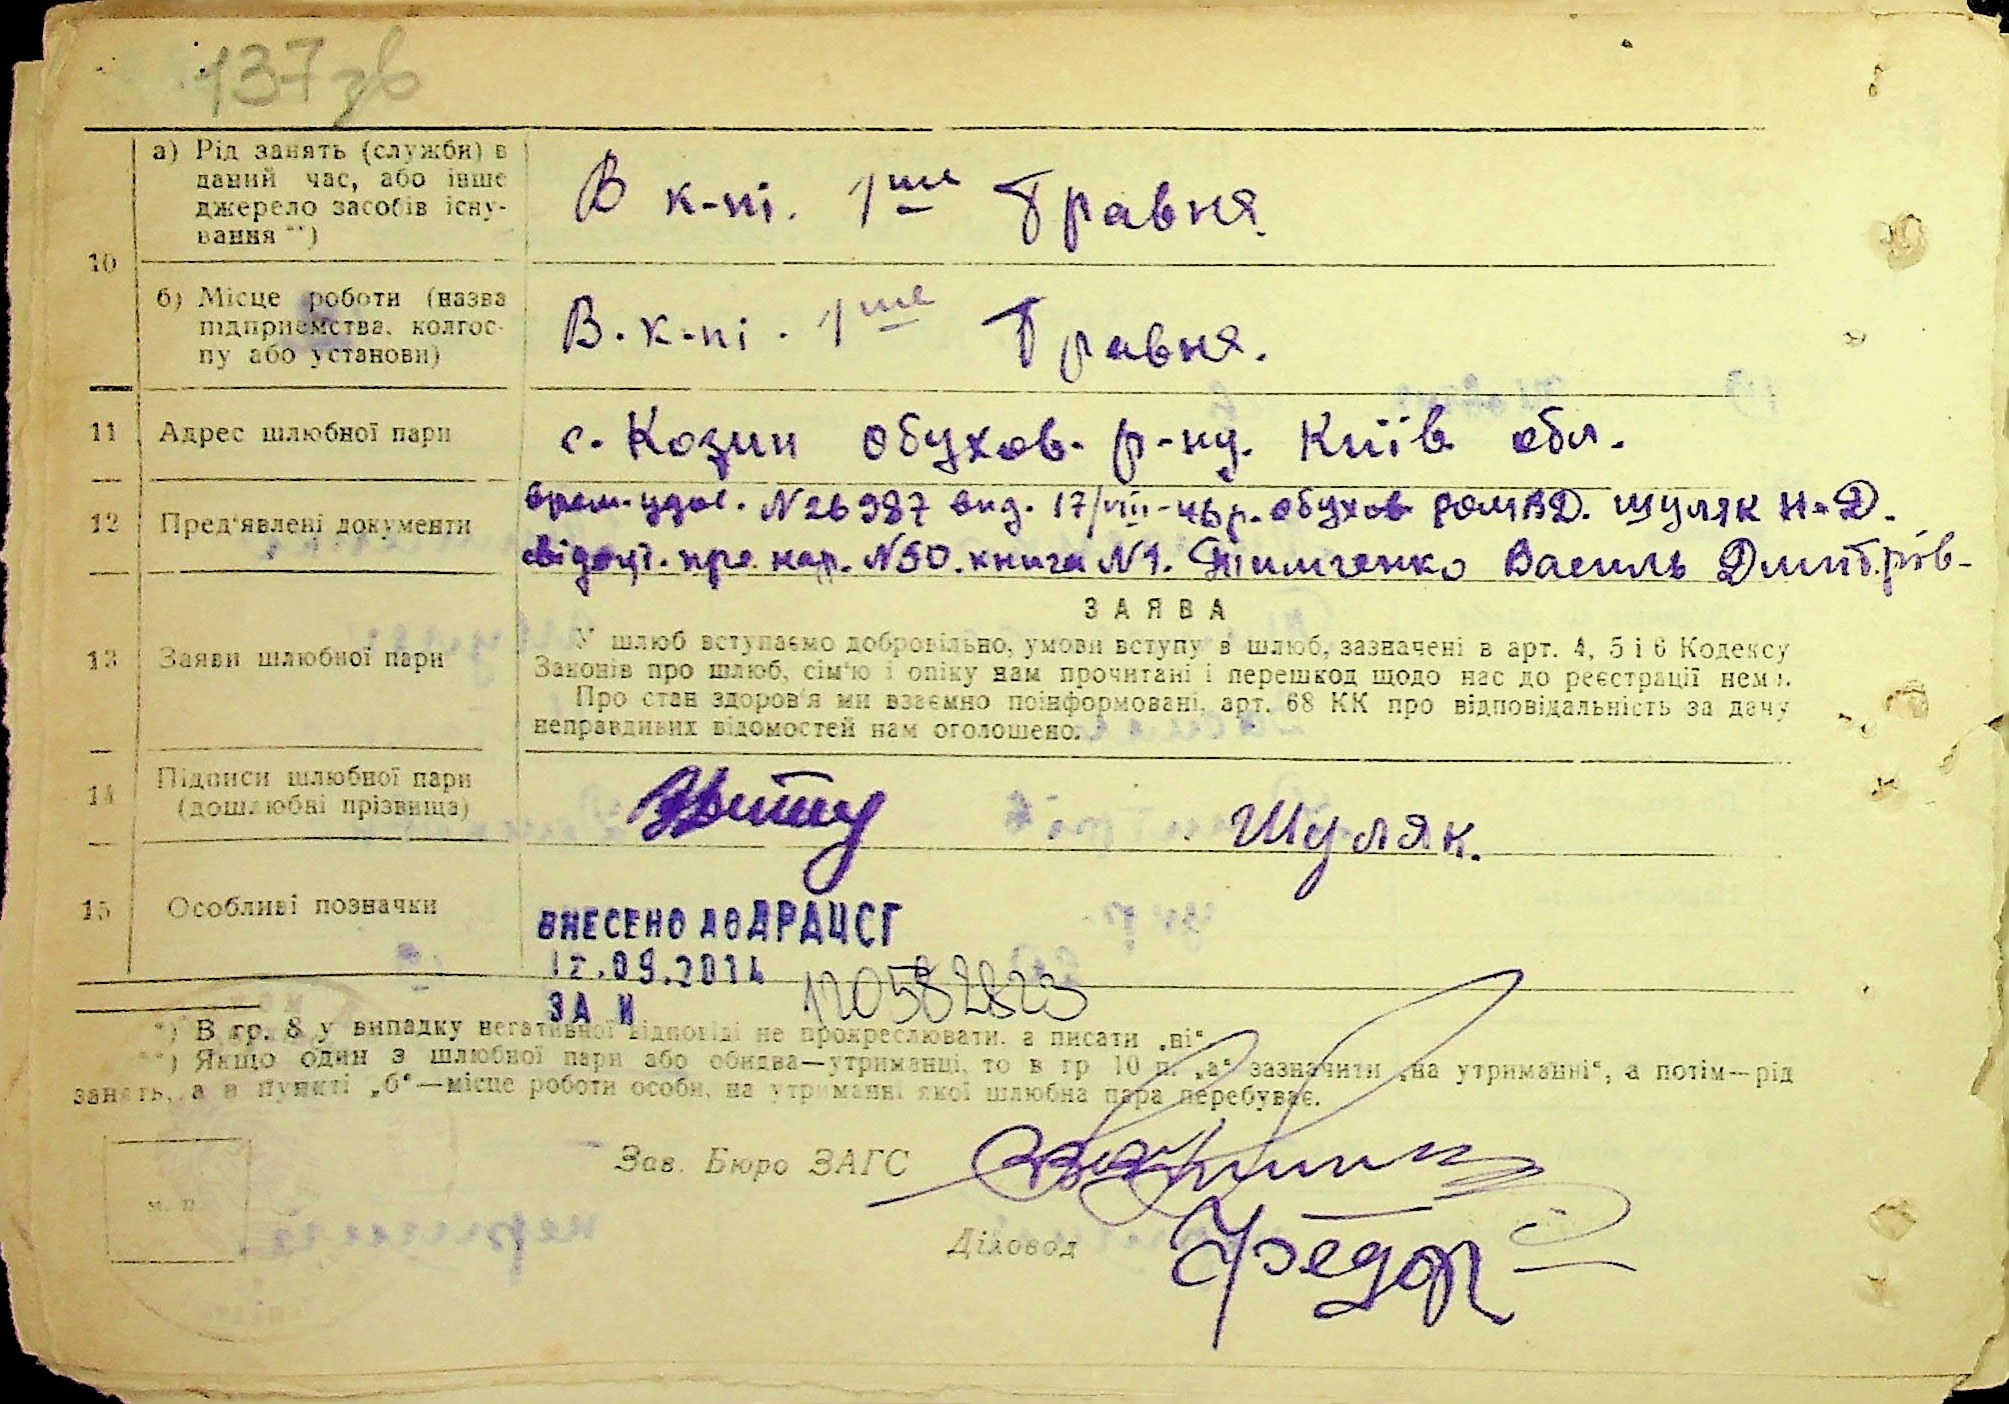 137 зв
а) Рід занять (служби) в
даний час, або інше
джерело засобів існу-
вання **)
В к-пі. 1ше Травня.
10
б) Місце роботи (назва
підприємства, колгос-
пу або установи)
В. к-пі. 1ше Травня.
11 Адрес шлюбної пари
с. Козин Обухов. р-ну. Київ обл.
12 Пред'явлені документи
врем. удос. N 26987 вид. 17/VIII-46р. Обухов РОМВД. Шуляк Н. Д.
свідоцт. про нар. N 50. книга N 1. Тимченко Василь Дмитрів-
ЗАЯВА
13 Заяви шлюбної пари
У шлюб вступаємо добровільно, умови вступу в шлюб, зазначені в арт. 4, 5 і 6 Кодексу
Законів про шлюб, сім'ю і опіку нам прочитані і перешкод щодо нас до реєстрації нема.
Про стан здоров'я ми взаємно поінформовані, арт. 68 КК про відповідальність за дачу
неправдивих відомостей нам оголошено.
14 Підписи шлюбної пари
(дошлюбні прізвища)
Шуляк.
15 Особливі позначки
ВНЕСЕНО ДО ДРАЦСГ
.09.2014
ЗА N 120582823
*) В гр. 8 у випадку негативної відповіді не прокреслювати, а писати „ні“.
**) Якщо один з шлюбної пари або обидва—утриманці, то в гр 10 п. „а“ зазначити „на утриманні“, а потім—рід
занять, а в пункті „б“—місце роботи особи, на утриманні якої шлюбна пара перебуває.
Зав. Бюро ЗАГС
м. п.
Діловод Федор